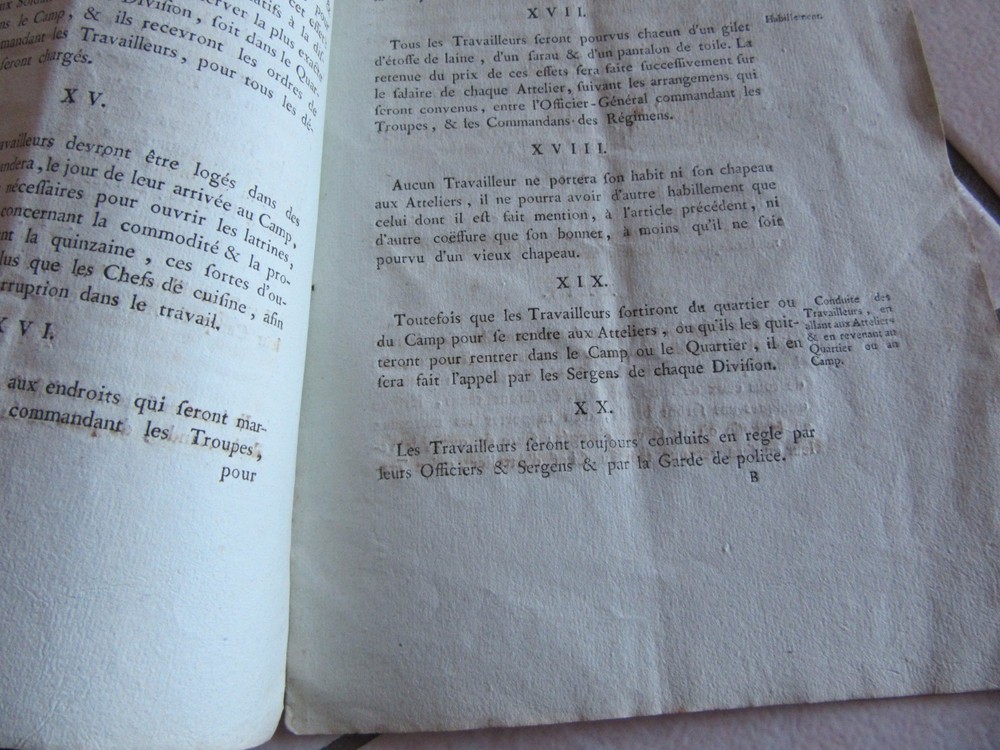 ver la plus exacte
Division, soit dans le Quar-
ns le Camp, & ils recevront les ordres de
mandant les Travailleurs, pour tous les dé-
seront chargés.
XV.
availleurs devront être logés dans des
andera, le jour de leur arrivée au Camp,
nécessaires pour ouvrir les latrines,
concernant la commodité & la pro-
nt la quinzaine, ces sortes d'ou-
lus que les Chefs de cuisine, afin
rruption dans le travail.
XVI.
aux endroits qui seront mar-
commandant les Troupes,
pour
XVII.
Habillement.
Tous les Travailleurs seront pourvus chacun d'un gilet
d'étoffe de laine, d'un sarau & d'un pantalon de toile. La
retenue du prix de ces effets sera faite successivement sur
le salaire de chaque Attelier, suivant les arrangemens qui
seront convenus, entre l'Officier-Général commandant les
Troupes, & les Commandans des Régimens.
XVIII.
Aucun Travailleur ne portera son habit ni son chapeau
aux Atteliers, il ne pourra avoir d'autre habillement que
celui dont il est fait mention, à l'article précédent, ni
d'autre coëffure que son bonnet, à moins qu'il ne soit
pourvu d'un vieux chapeau.
XIX.
Toutefois que les Travailleurs sortiront du quartier ou
du Camp pour se rendre aux Atteliers, ou qu'ils les quit-
teront pour rentrer dans le Camp ou le Quartier, il en
sera fait l'appel par les Sergens de chaque Division.
Conduite des
Travailleurs, en
allant aux Atteliers
& en revenant au
Quartier ou au
Camp.
XX.
Les Travailleurs seront toujours conduits en regle par
leurs Officiers & Sergens & par la Garde de police.
B